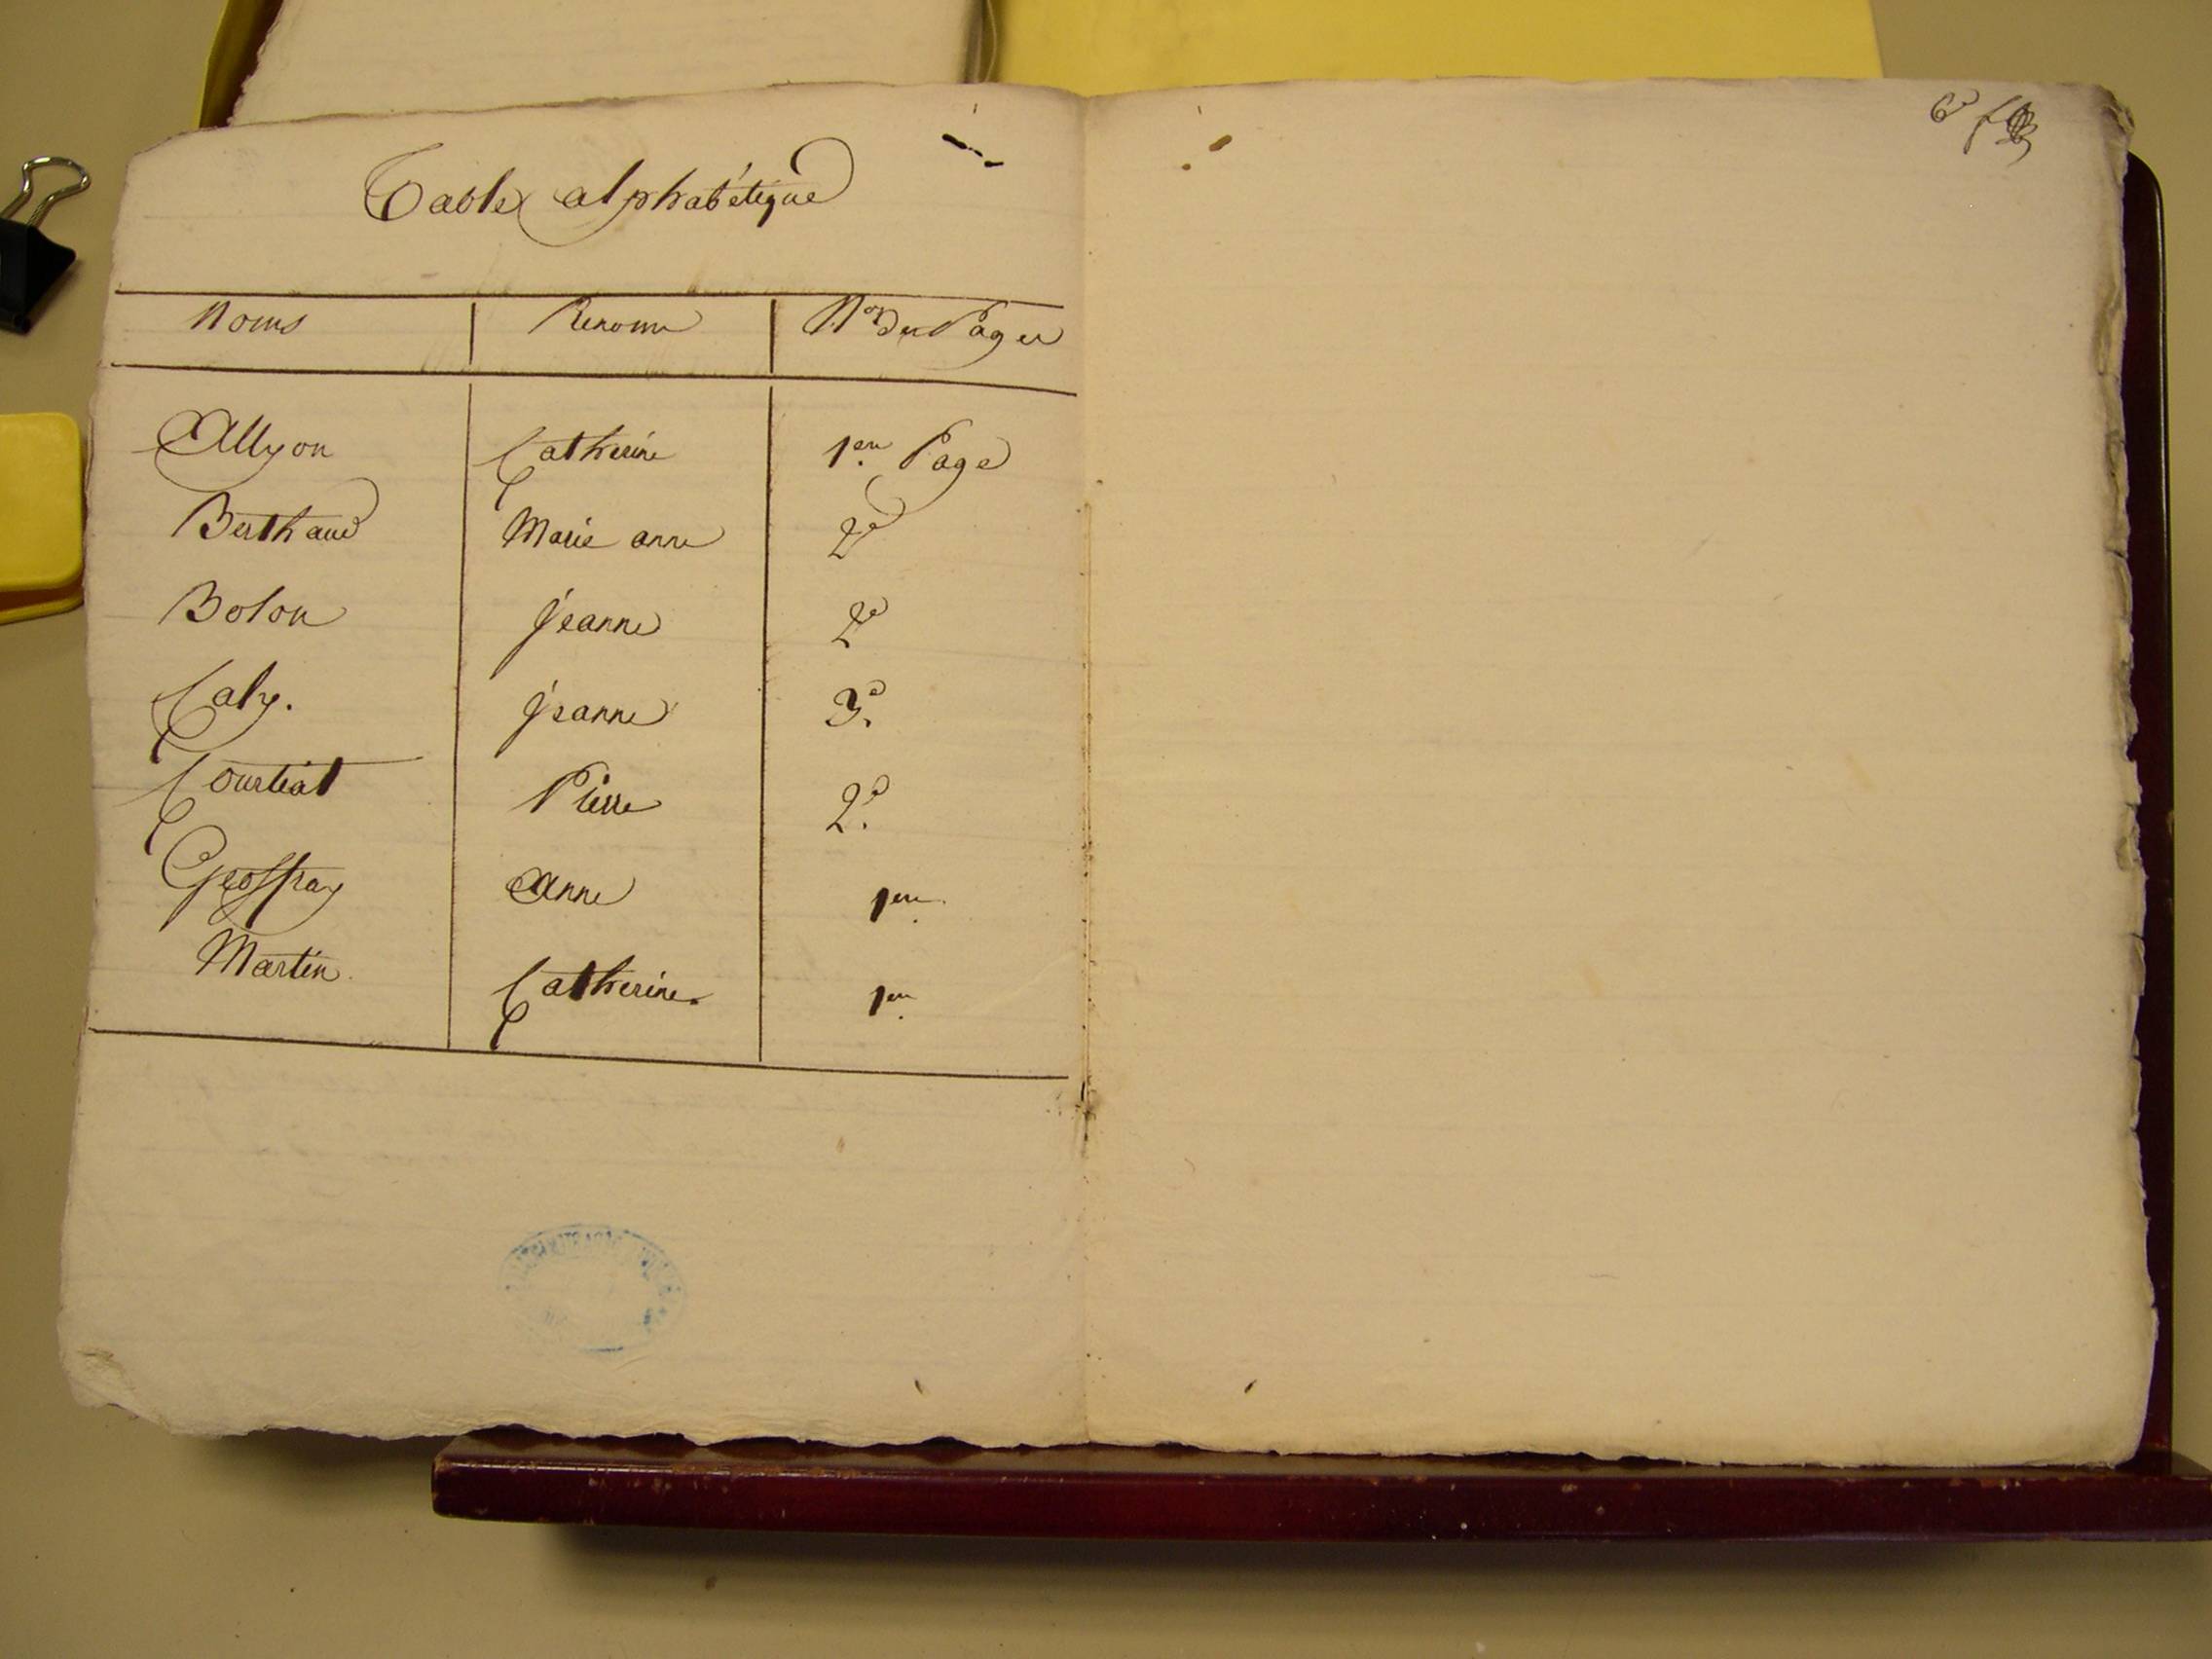 Table alphabétique
Noms Prenoms Nos des Pages
Allyon Catherine 1ere Page
Berthaud Marie anne 2e
Bolon Jeanne 2e
Caly. Jeanne 3e
Courtial Pierre 2e
Geoffray Anne 1ere
Martin Catherine 1ere
6e